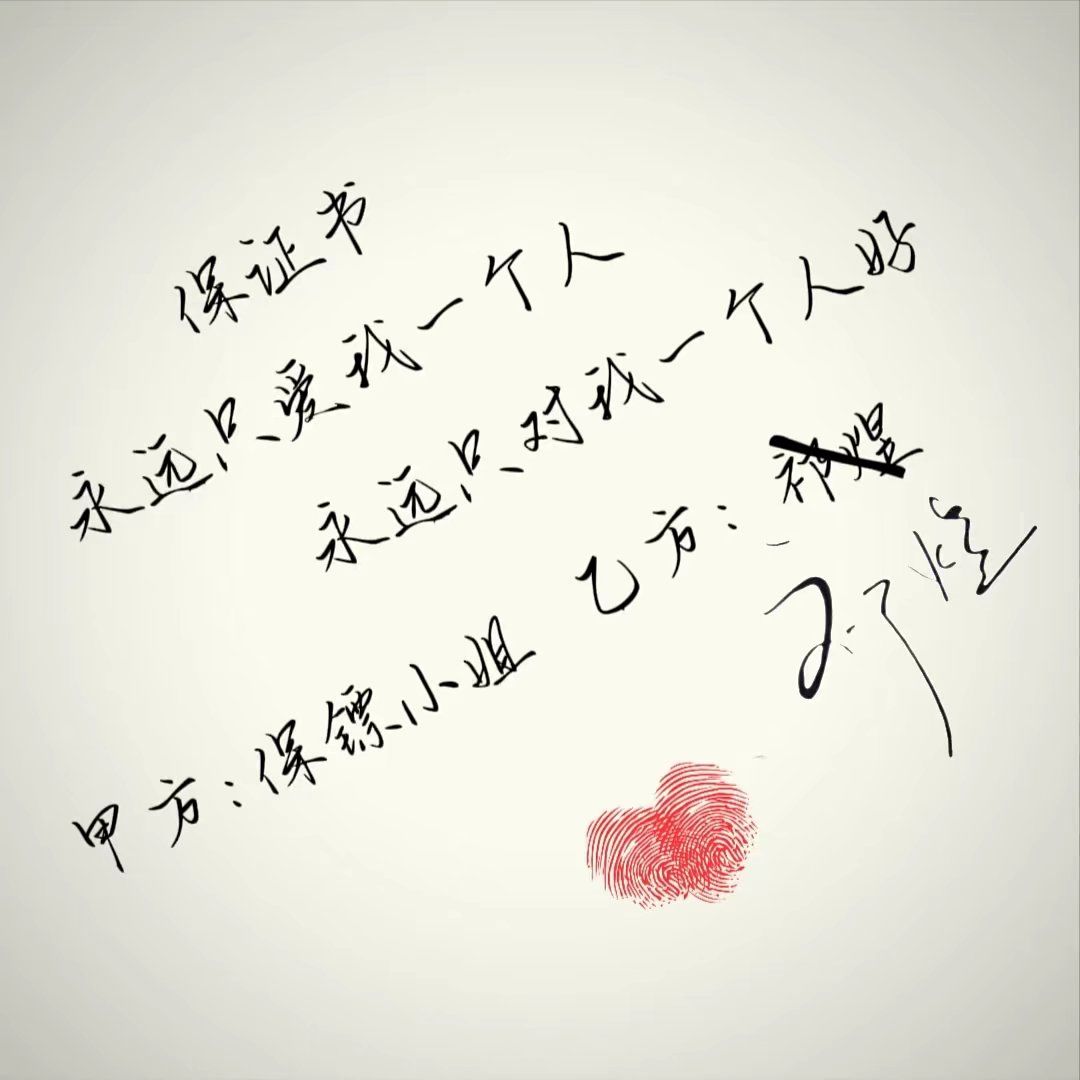 保证书
永远只爱我一个人
永远只对我一个人好
甲方：保镖小姐
乙方：祁煜
祁煜